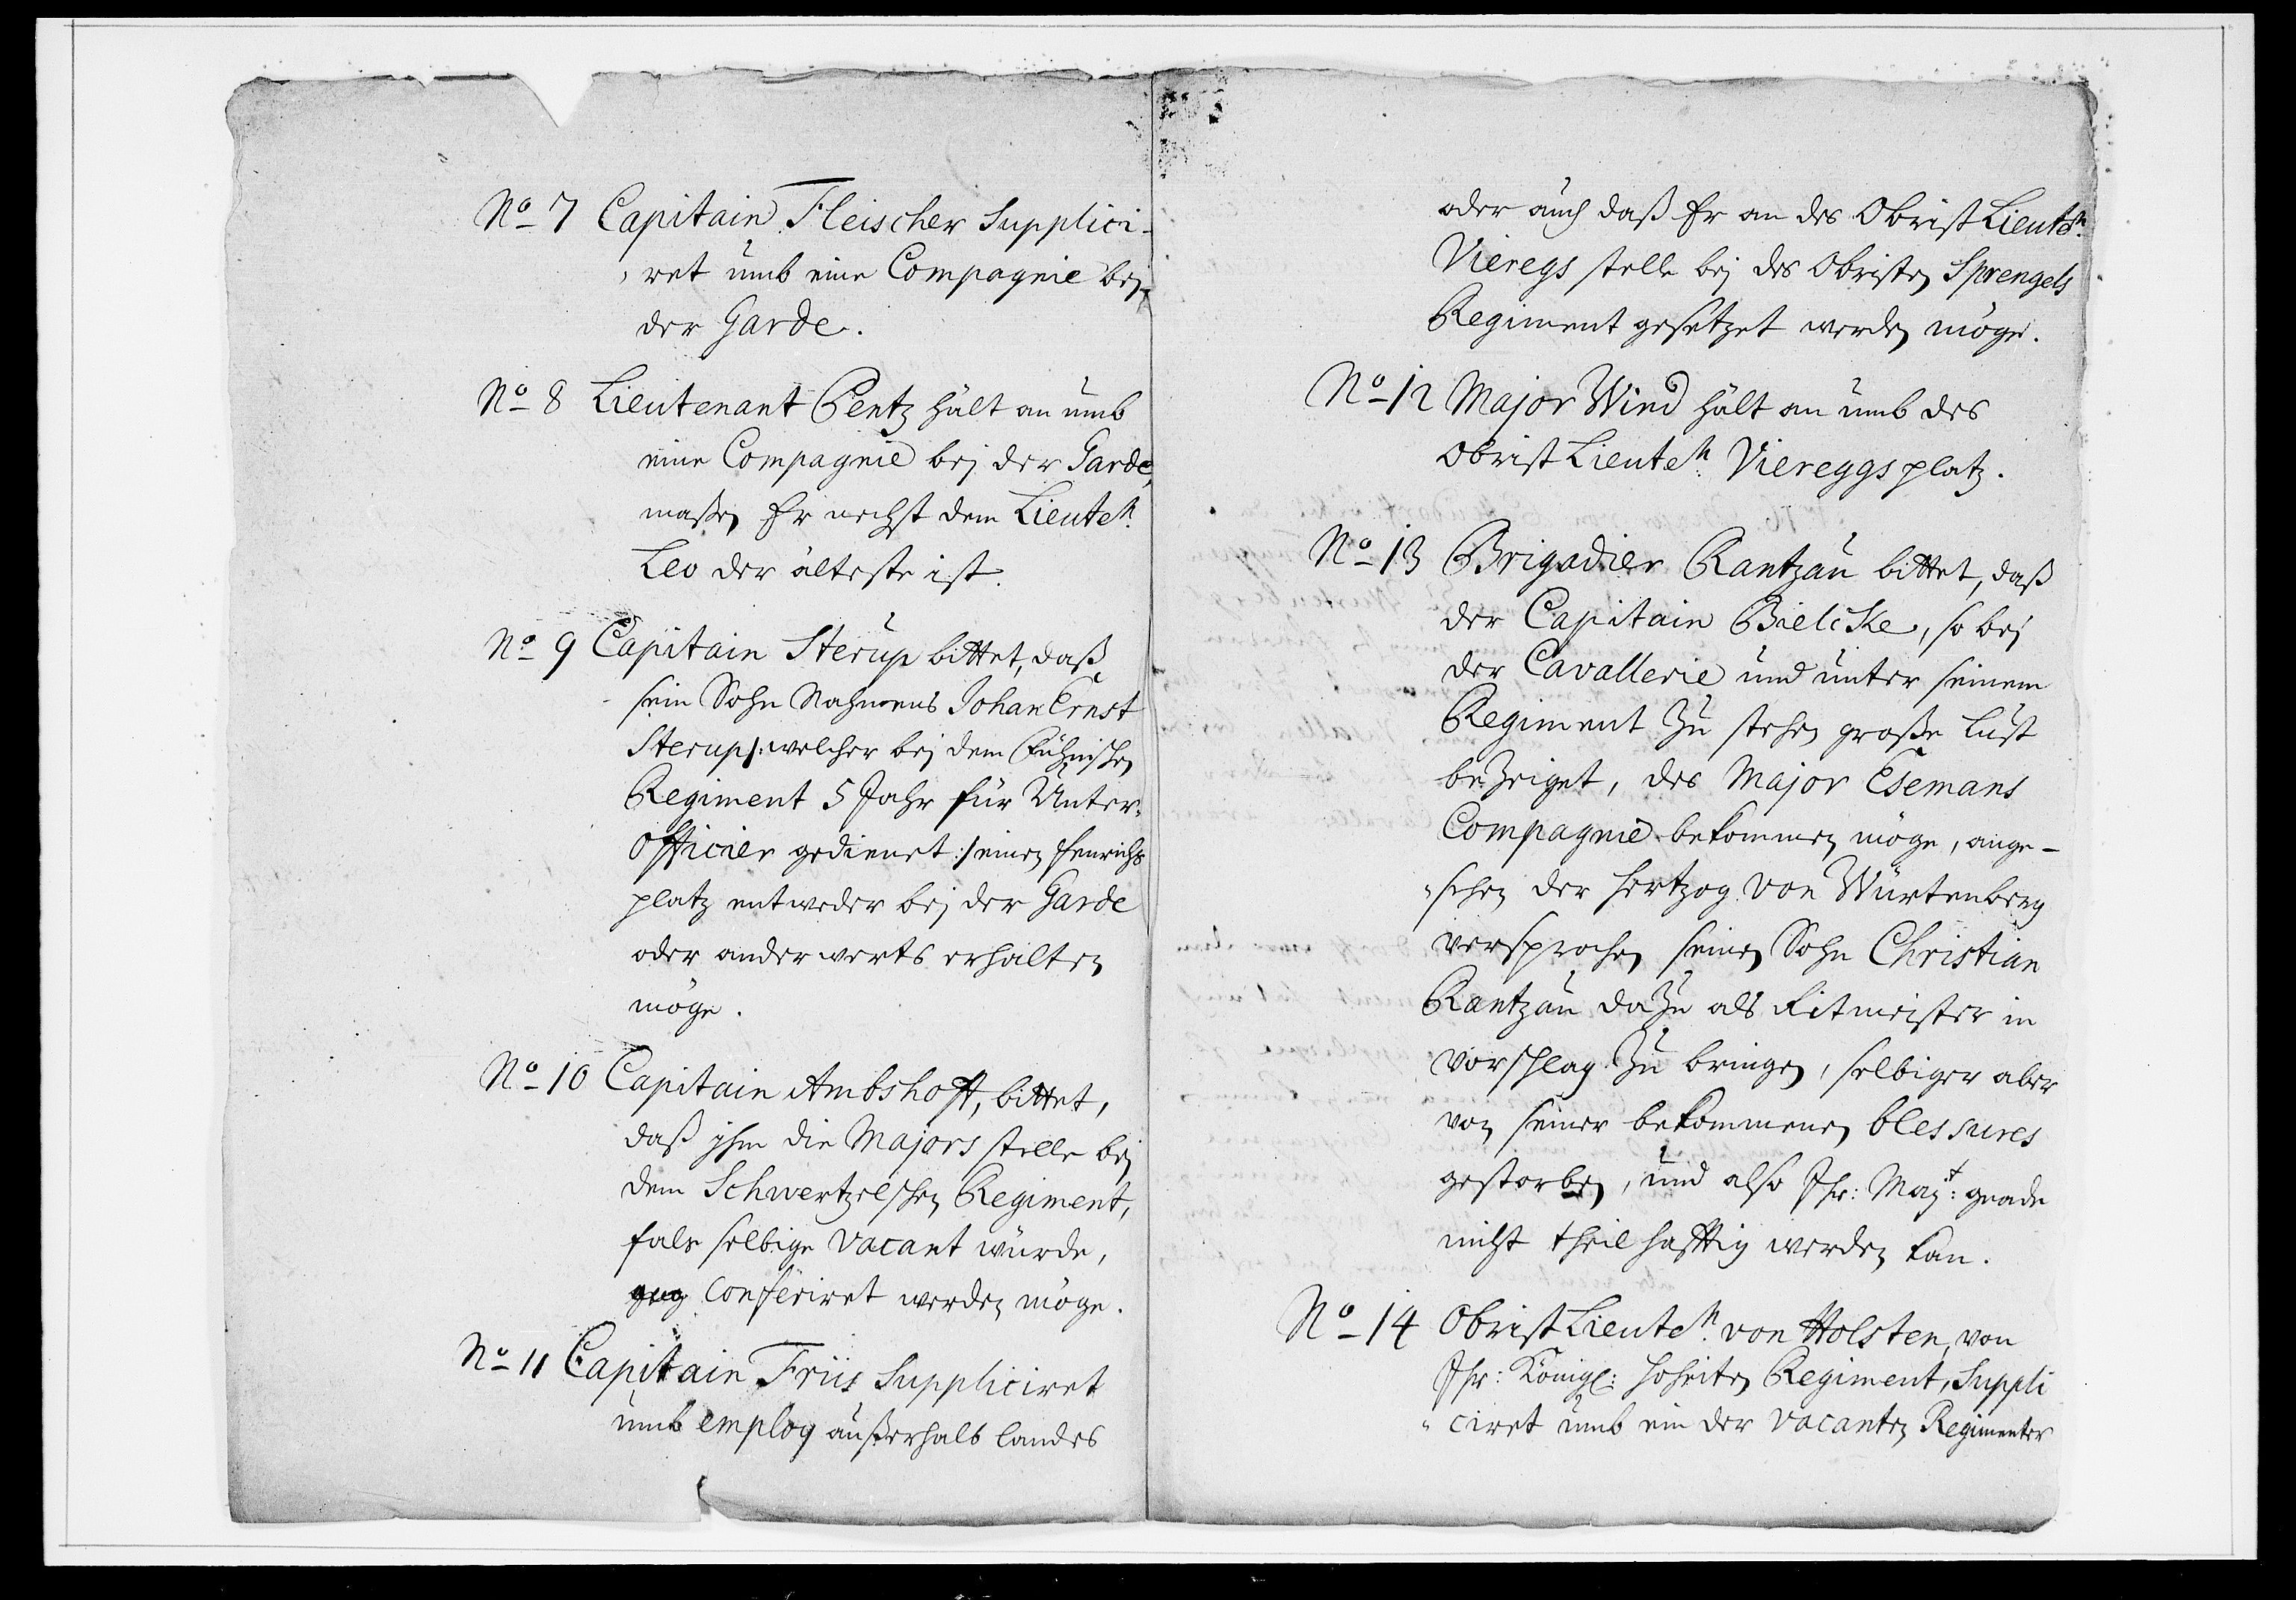 No 7 Capitain Fleischer Supplici-
ret umb eine Compagnie bey
der Garde.
No 8 Lieutenant Pentz hält an umb
eine Compagnie bey der Garde,
maßen Er nechst dem Lieuten.
Leo der älteste ist.
No 9 Capitain Sterup bittet, daß
sein Sohn Nahmens Johan Ernst
Sterup /: welcher bey dem Fühnischen
Regiment 5 Jahr für Unter-
Officier gedienet :/ einen Fenrichs
platz entweder bey der Garde
oder anderwerts erhalten
möge.
No 10 Capitain Ambshoff, bittet,
daß ihm die Majors stelle bey
dem Schwertzelschen Regiment,
fals selbige vacant würde,
conferiret werden möge.
No 11 Capitain Friis Suppliciret
umb employ außerhalb landes
oder auch daß Er an des Obrist Lieuten.
Vieregs stelle bey des Obristen Sprengels
Regiment gesetzet werden möge.
No 12 Major Wind hält an umb des
Obrist Lieuten. Viereggs platz.
No 13 Brigadier Rantzau bittet, daß
der Capitain Bielcke, so bey
der Cavallerie und unter seinem
Regiment zu stehen große Lust
bezeiget, des Major Esemans
Compagnie bekommen möge, ange-
sehen der Hertzog von Würtenberg
versprochen seinen Sohn Christian
Rantzau dazu als Ritmeister in
vorschlag zu bringen, selbiger aber
von seiner bekommenen blessures
gestorben, und also Ihr: Mayt: gnade
nicht theilhafftig werden kan.
No 14 Obrist Lieuten. von Holsten, von
Ihr: Königl: Hoheiten Regiment, Suppli
ciret umb ein der vacanten Regimenter